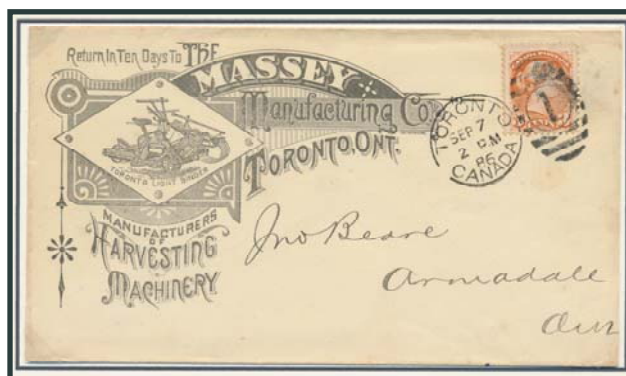 Return In Ten Days To THE
MASSEY
Manufacturing Co.
TORONTO, ONT.
TORONTO LIGHT BINDER
MANUFACTURERS
OF
HARVESTING
MACHINERY.
TORONTO
SEP 7
2 PM
86
CANADA
1
Jno Beare
Armadale
Ont